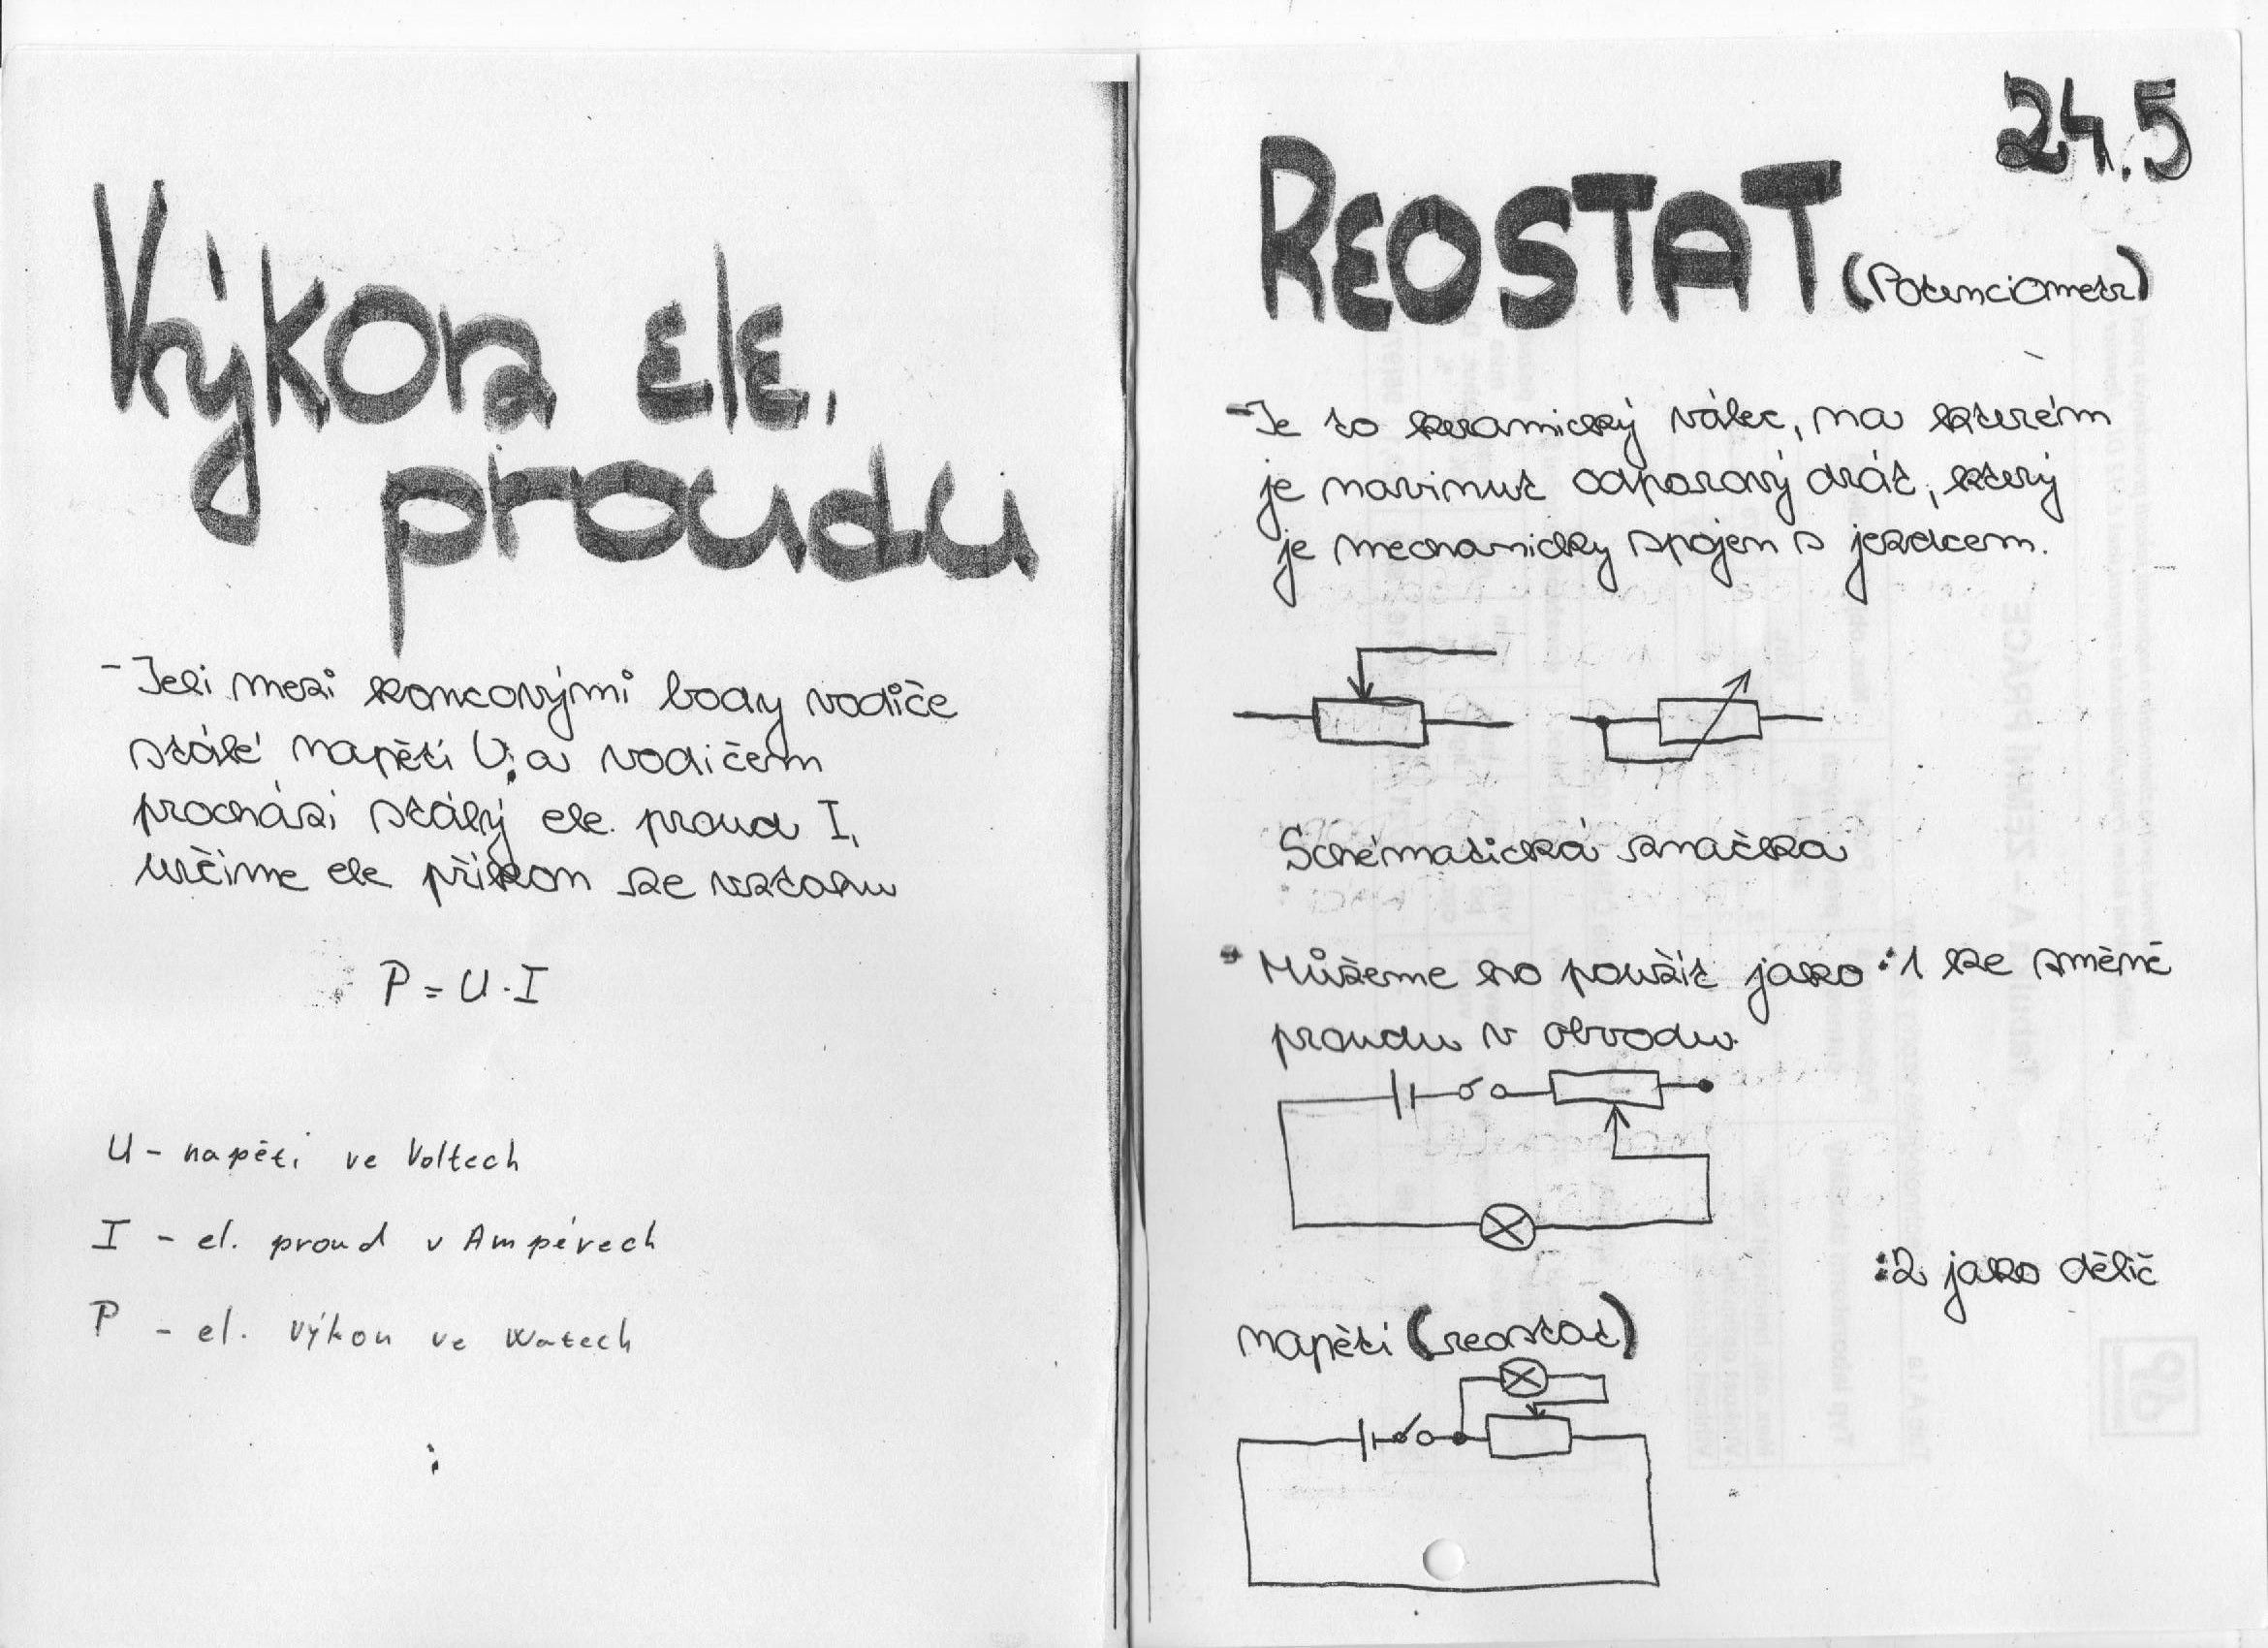 Výkon ele.
proudu
- Jeli mezi koncovými body vodiče
stálé napětí U, a vodičem
prochází stálý ele. proud I,
určíme ele příkon ze vztahu
P = U · I
U - napětí ve Voltech
I - el. proud v Ampérech
P - el. výkon ve Watech
24.5
REOSTAT (Potenciometr)
- Je to keramický válec, na kterém
je navinut odporový drát, který
je mechanicky spojen s jezdcem.
Schématická značka
Můžeme ho použít jako :1 ke změně
proudu v obvodu.
:2 jako dělič
napětí (reostat)